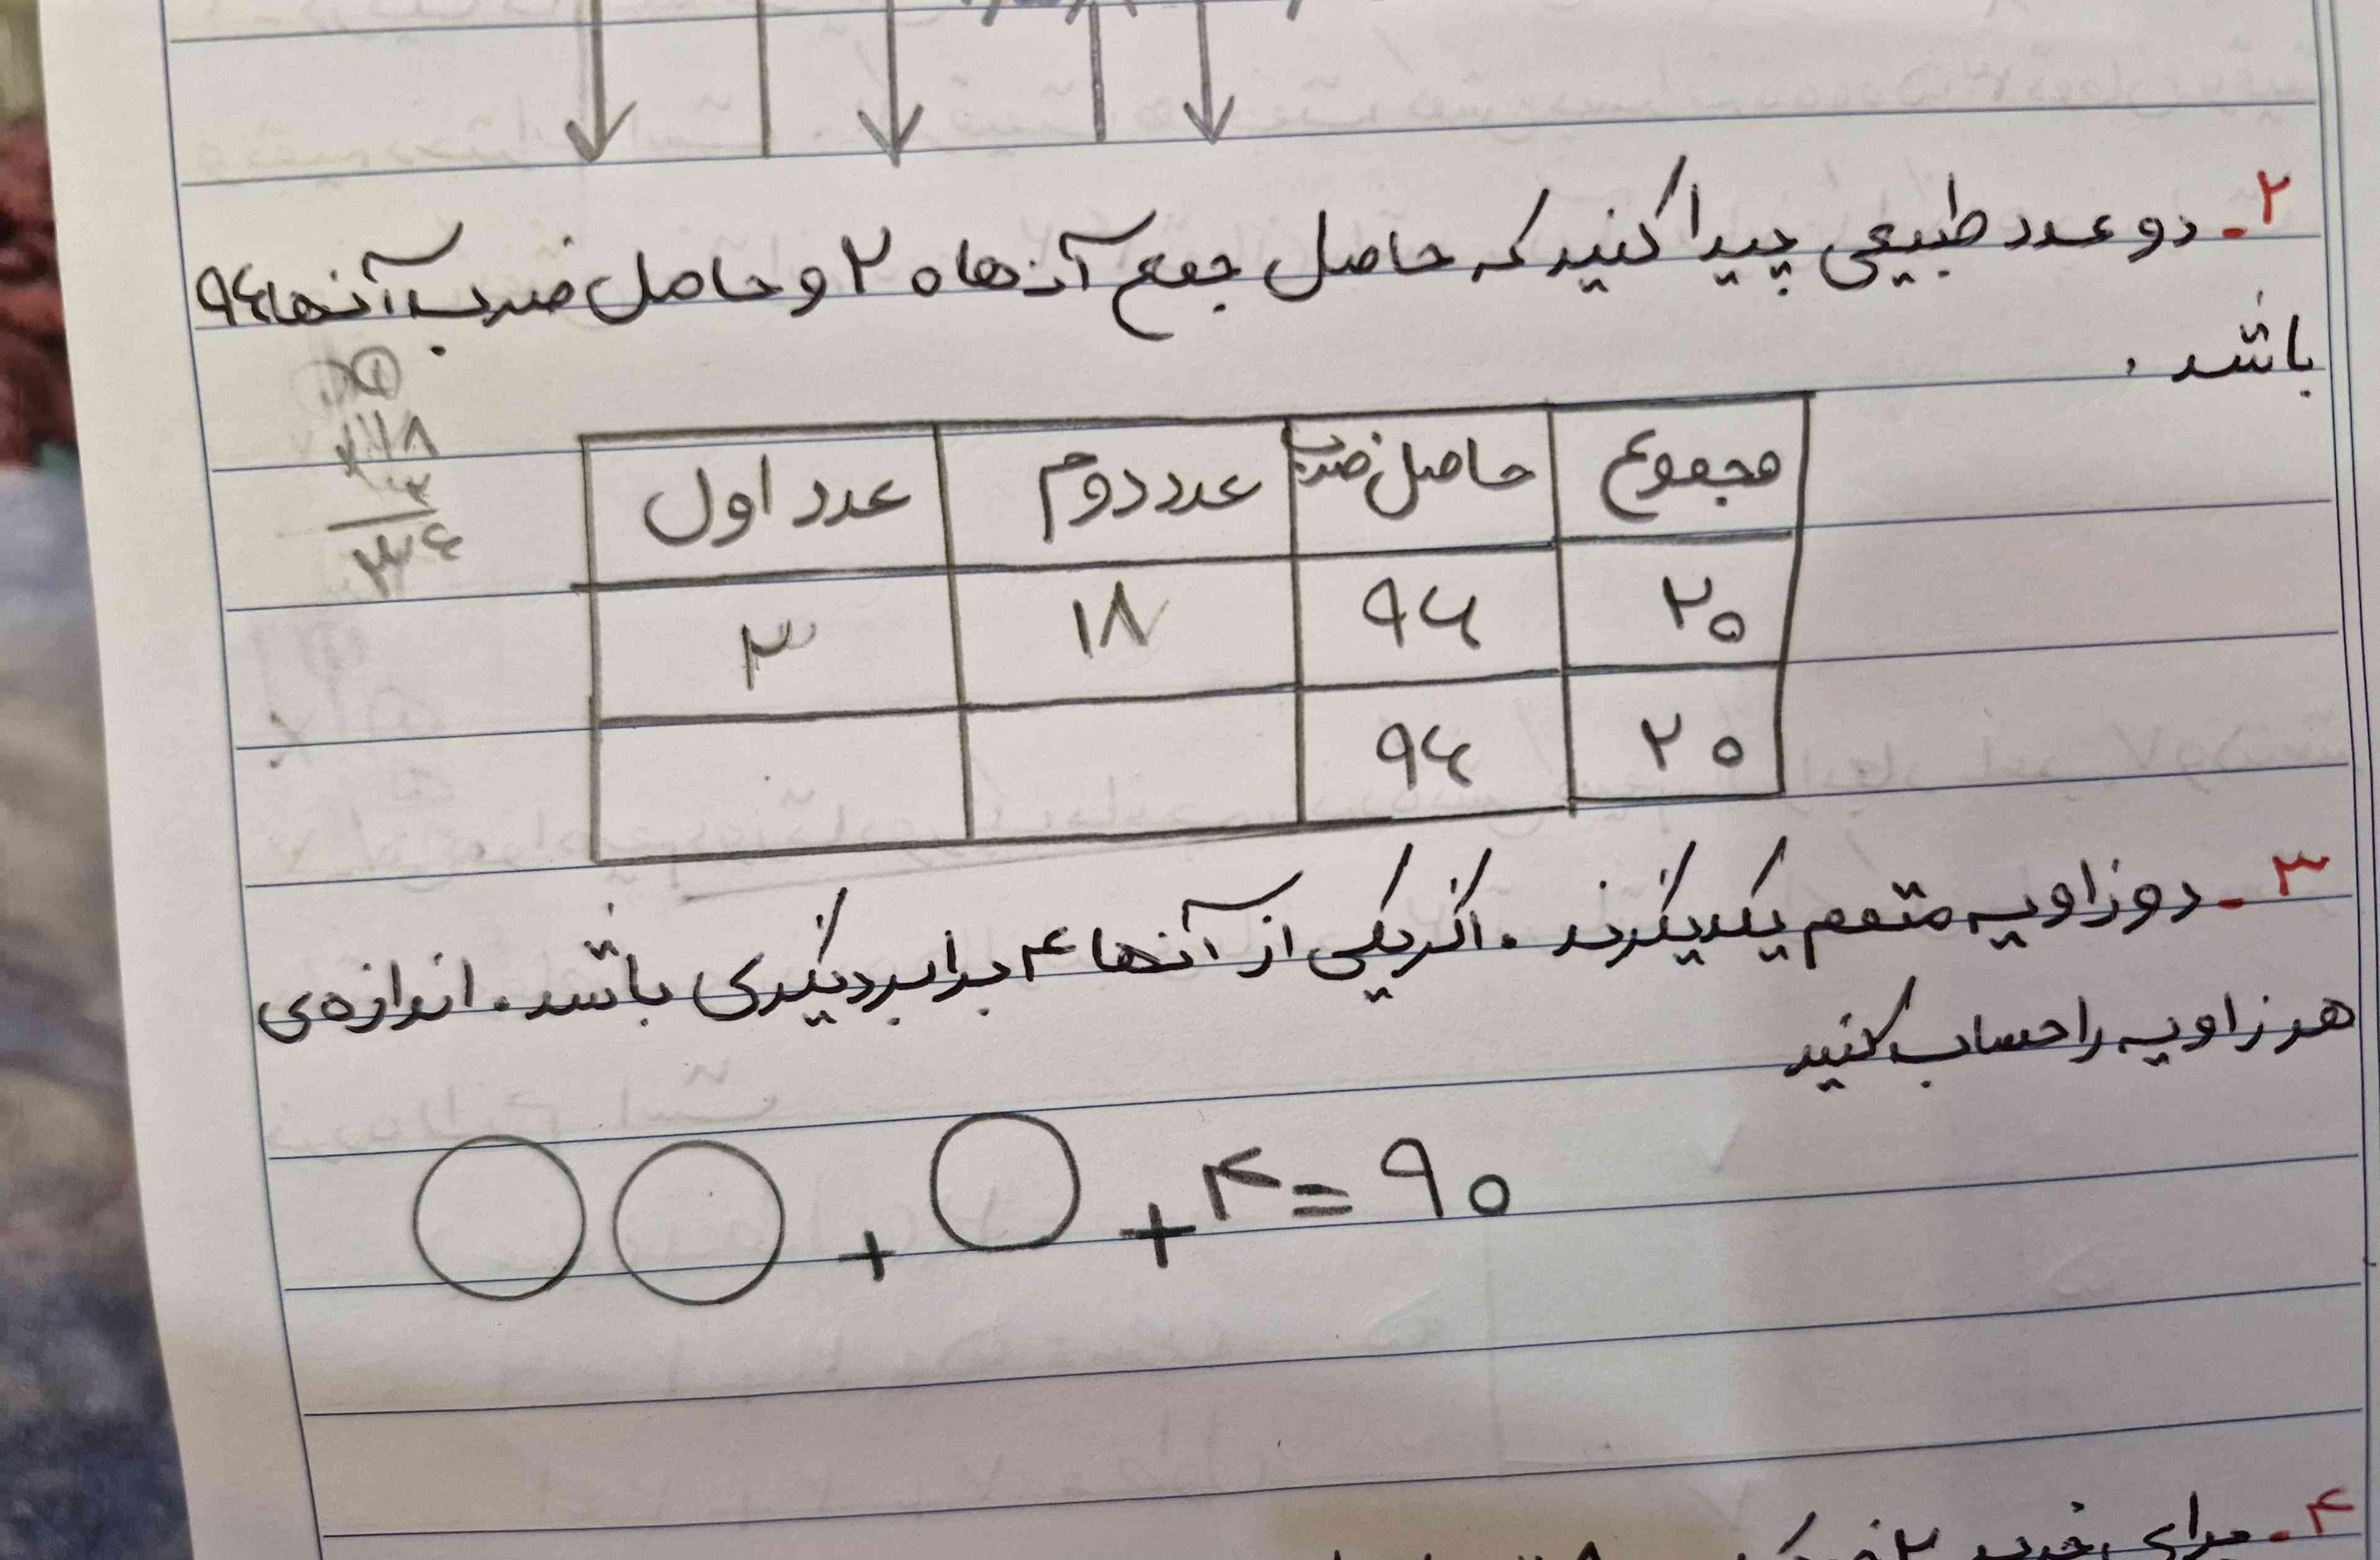 ۲- دو عدد طبیعی پیدا کنید که حاصل جمع آنها ۲۰ و حاصل ضرب آنها ۹۶
باشد.
مجموع حاصل ضرب عدد دوم عدد اول
۲۰ ۹۶ ۱۸ ۳
۲۰ ۹۶
۳- دو زاویه متمم یکدیگرند. اگر یکی از آنها ۴ برابر دیگری باشد. اندازه‌ی
هر زاویه را حساب کنید
+ + ۴ = ۹۰
۴- برای خرید ۲